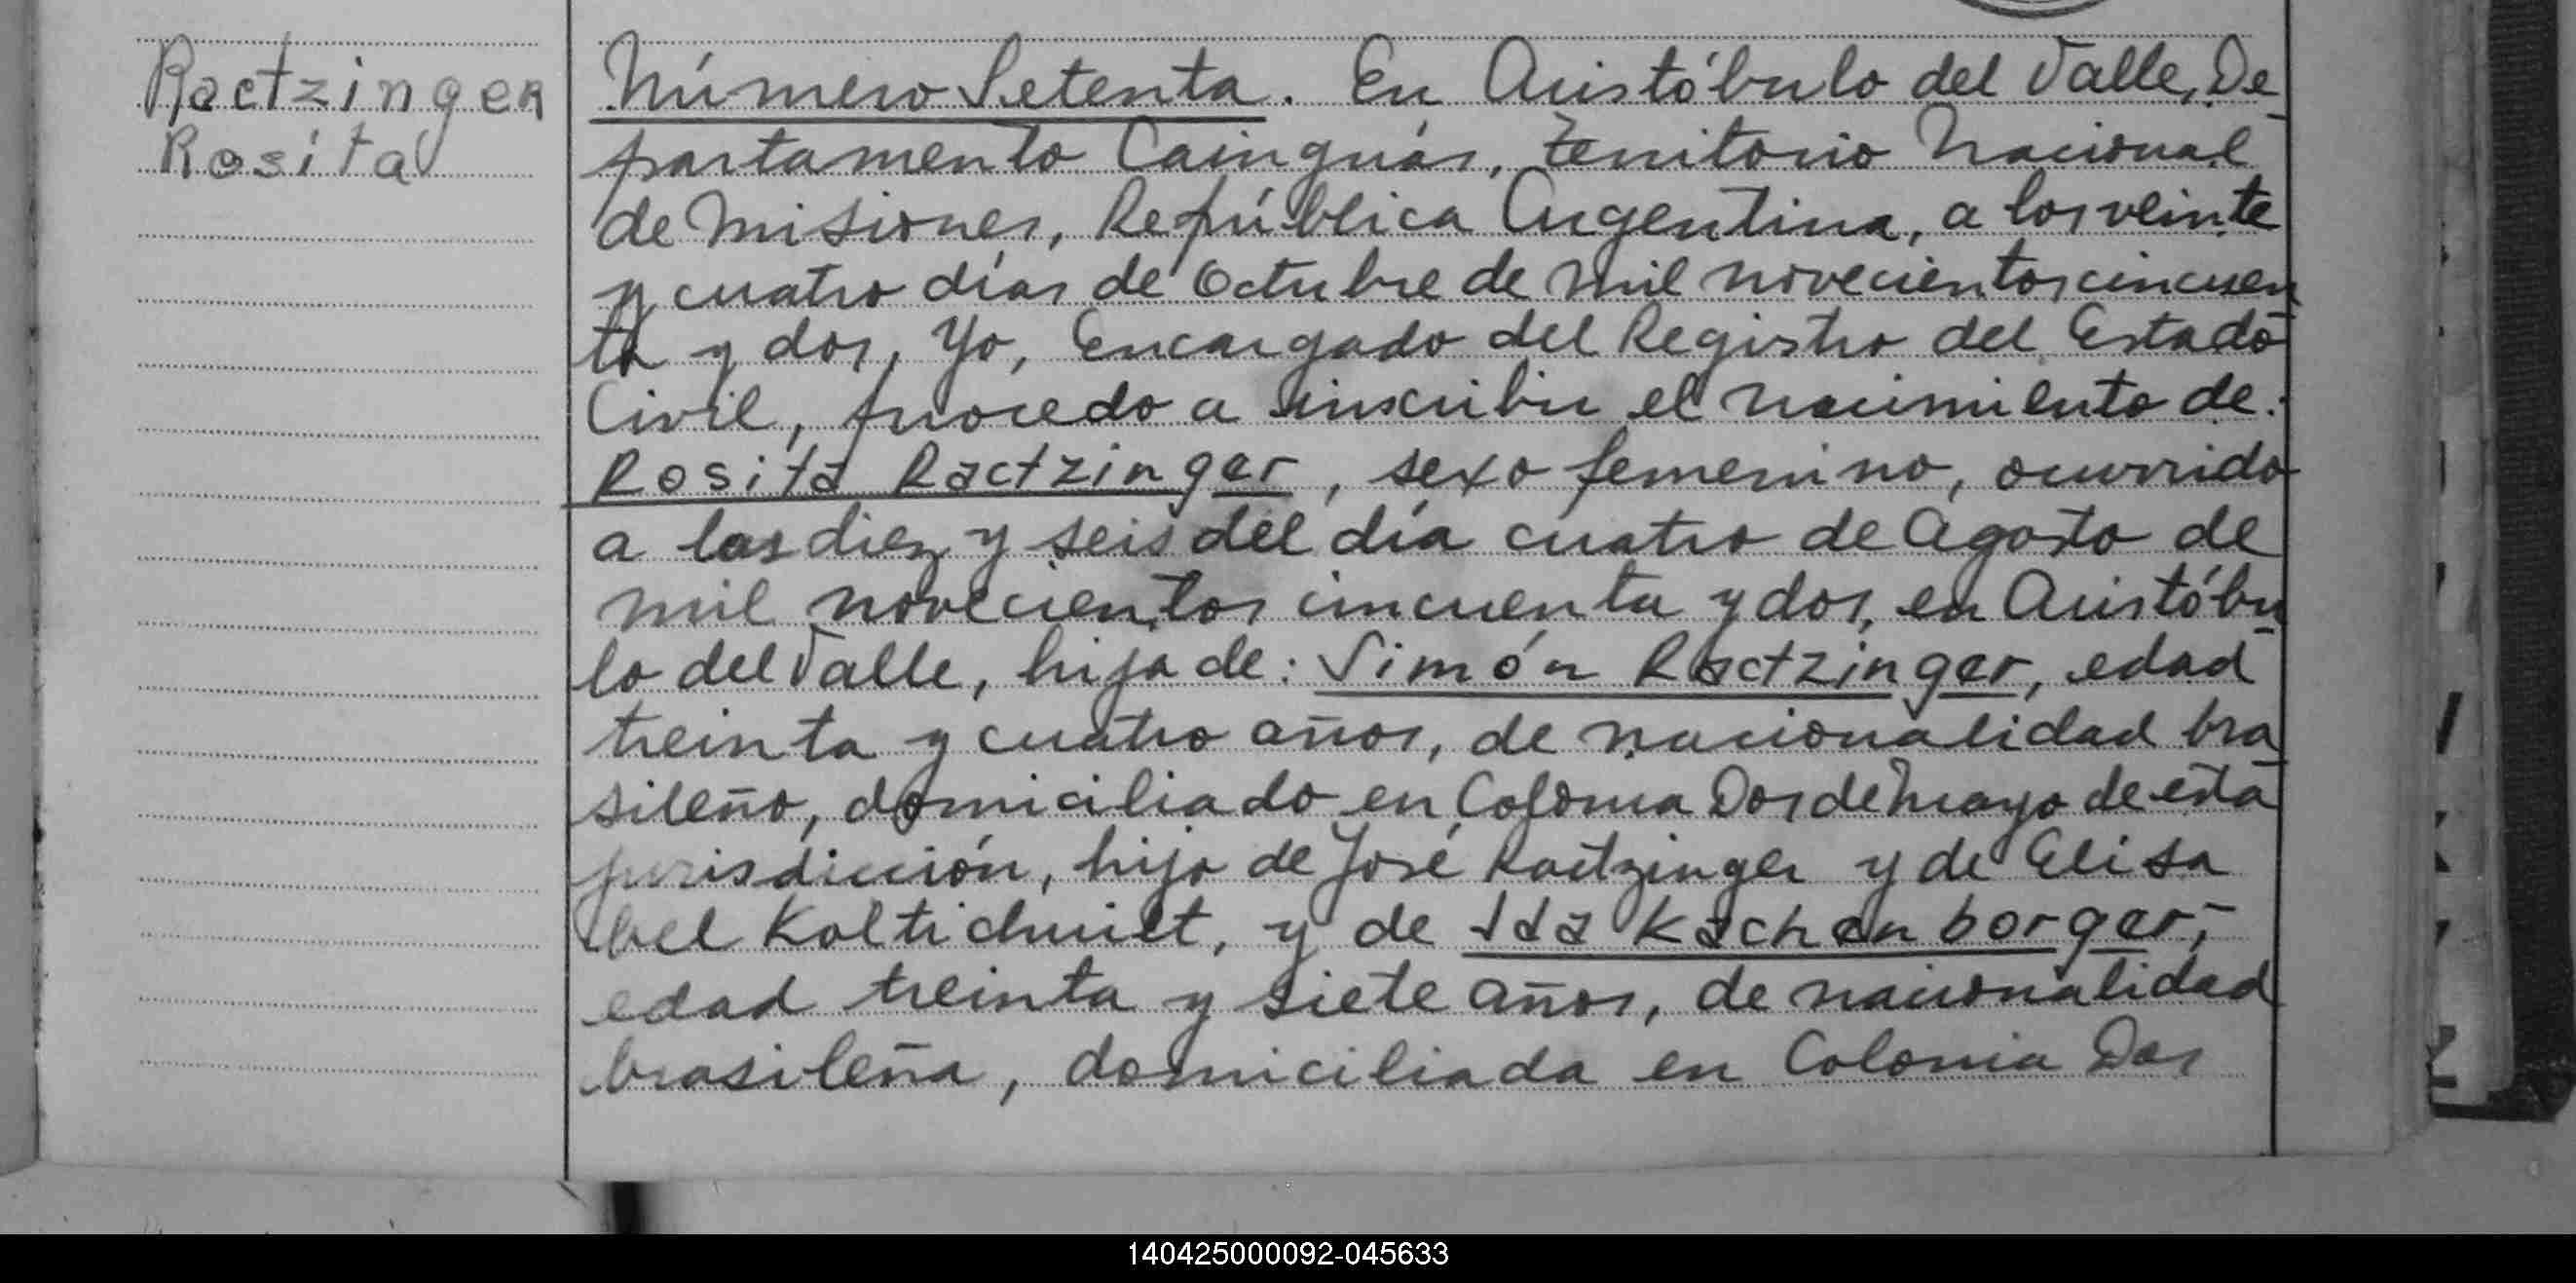 Ractzinger
Rosita
Número Setenta. En Aristóbulo del Valle, De
partamento Cainguás, territorio Nacional
de Misiones, República Argentina, a los veinte
y cuatro días de Octubre de mil novecientos cincuen
ta y dos, Yo, Encargado del Registro del Estado
Civil, procedo a inscribir el nacimiento de:
Rosita Ractzinger, sexo femenino, ocurrido
a las diez y seis del día cuatro de Agosto de
mil novecientos cincuenta y dos, en Aristóbu
lo del Valle, hija de: Simón Ractzinger, edad
treinta y cuatro años, de nacionalidad bra
sileño, domiciliado en Colonia Dos de Mayo de esta
jurisdicción, hijo de José Ractzinger y de Elisa
bel, y de Ida Kachenborger,
edad treinta y siete años, de nacionalidad
brasileña, domiciliada en Colonia Dos
140425000092-045633